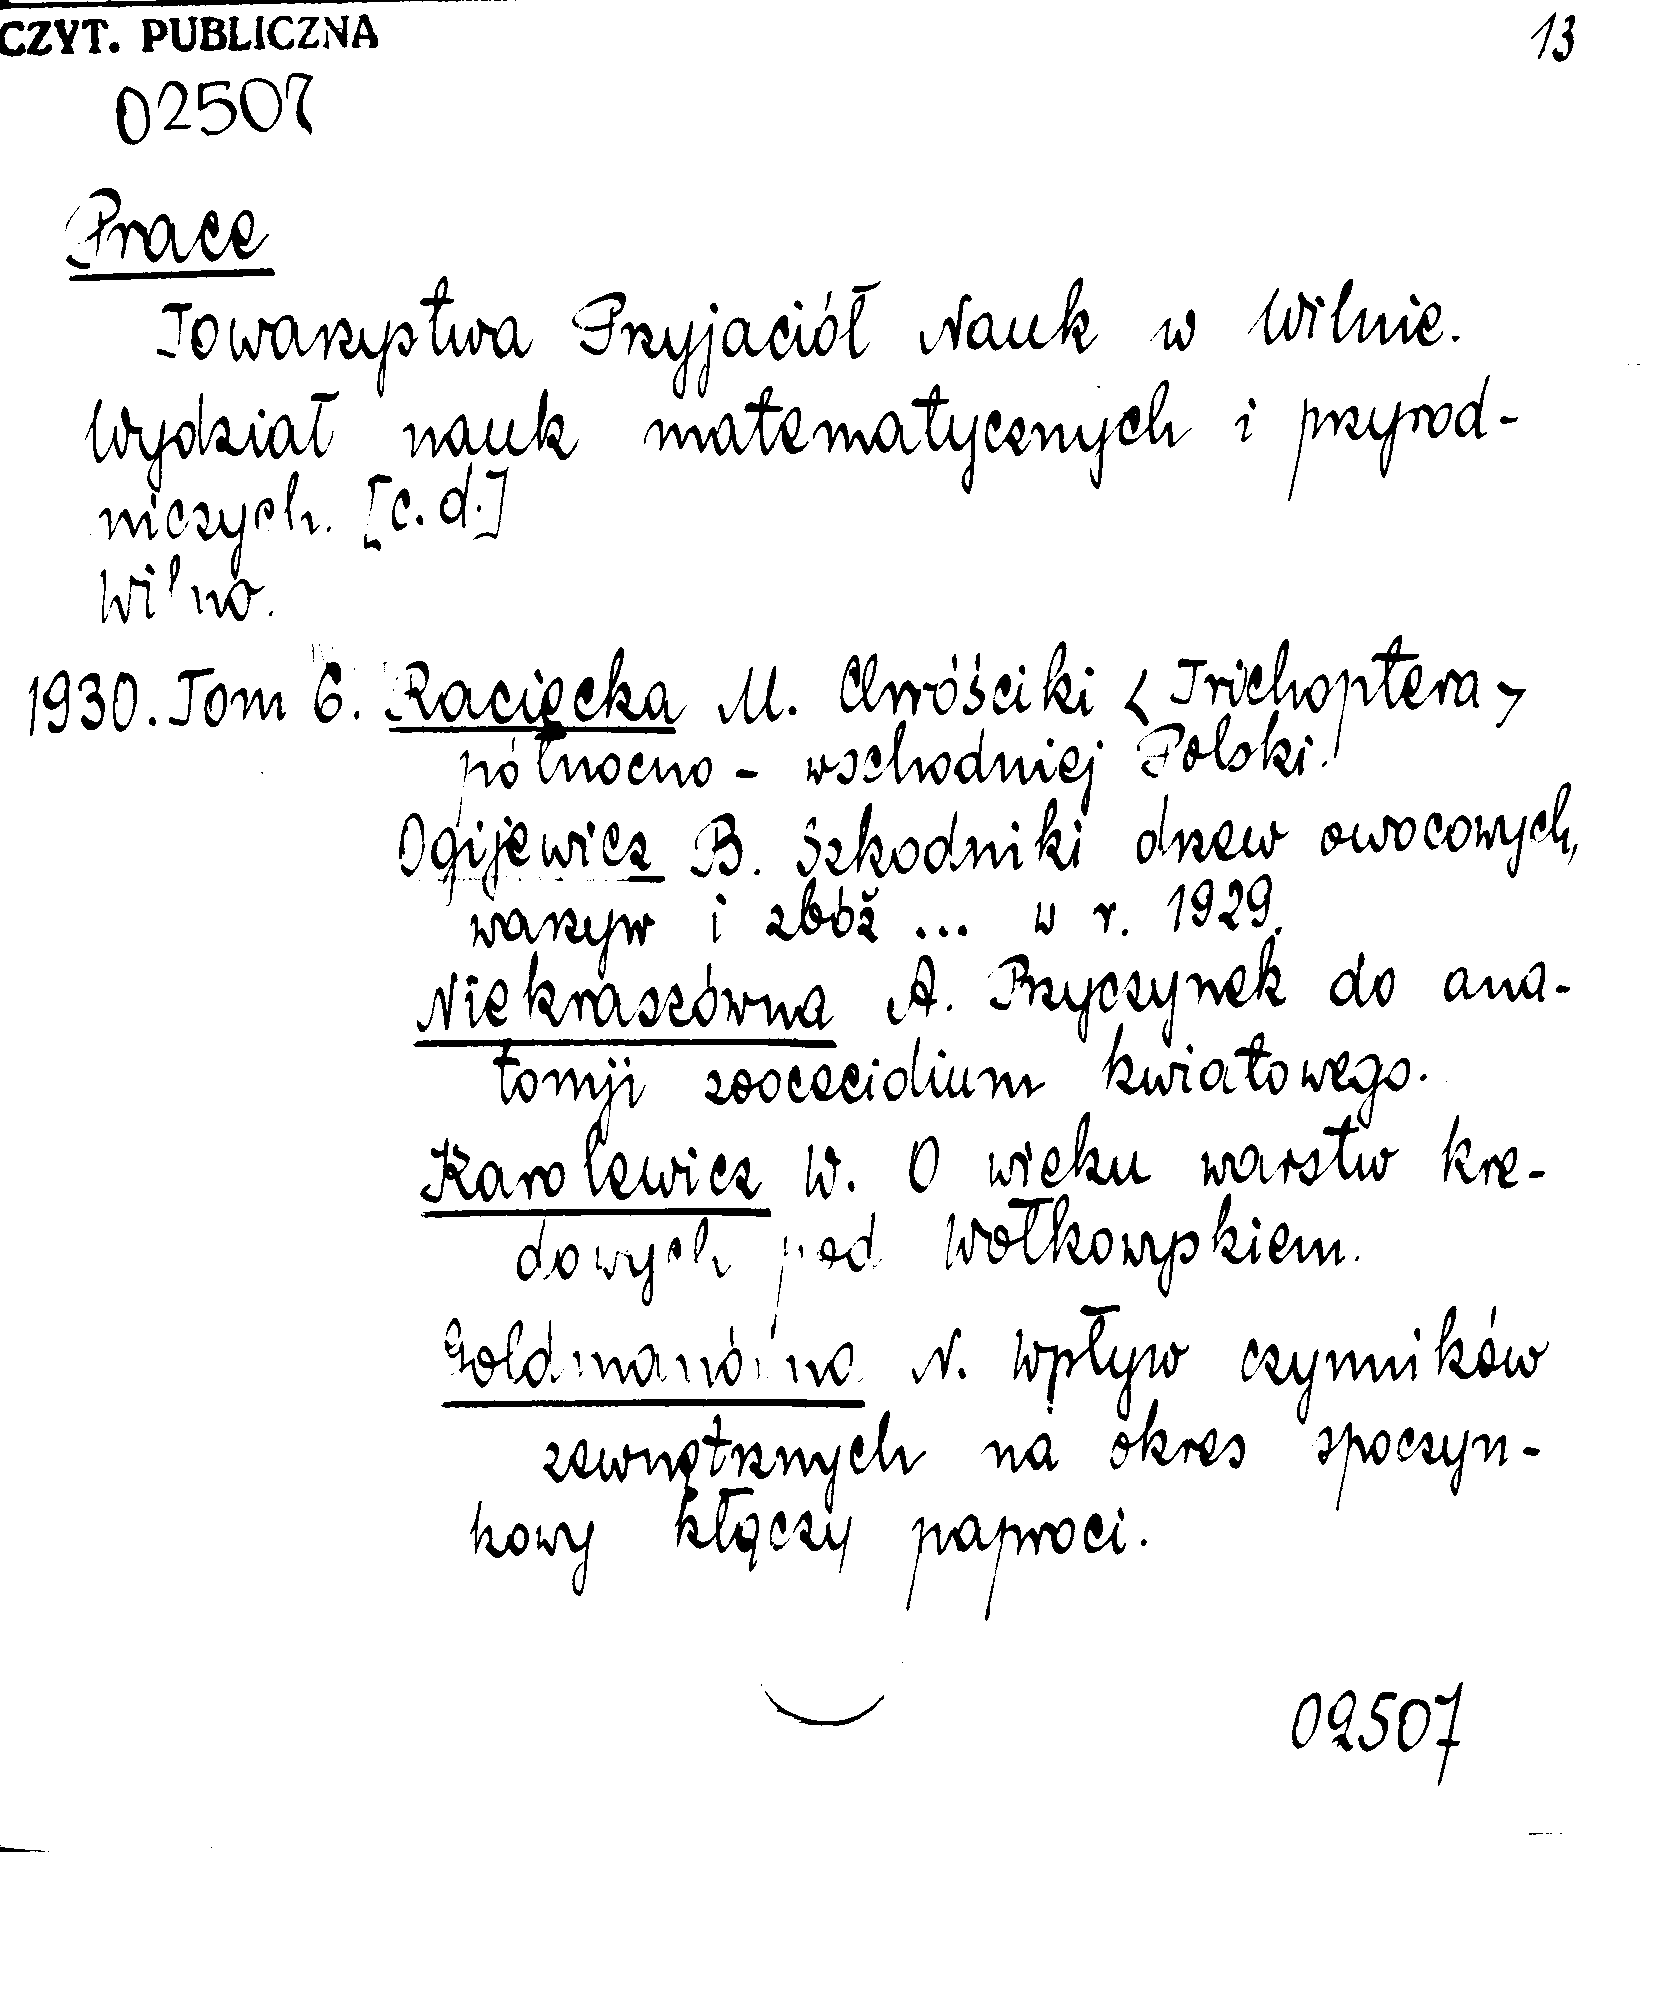 CZYT. PUBLICZNA
13
02507
Prace
Towarzystwa Przyjaciół Nauk w Wilnie.
Wydział nauk matematycznych i przyrod-
niczych. [c.d.]
Wilno.
1930. Tom 6. Racięcka M. Chróściki <Trichoptera>
północno - wschodniej Polski.
Ogijewicz B. Szkodniki drzew owocowych,
warzyw i zbóż ... w r. 1929.
Niekraszówna A. Przyczynek do ana-
tomji zoocecidium kwiatowego.
Karolewicz W. O wieku warstw kre-
dowych pod Wołkowyskiem.
Goldmanówna N. Wpływ czynników
zewnętrznych na okres spoczyn-
kowy kłączy paproci.
02507